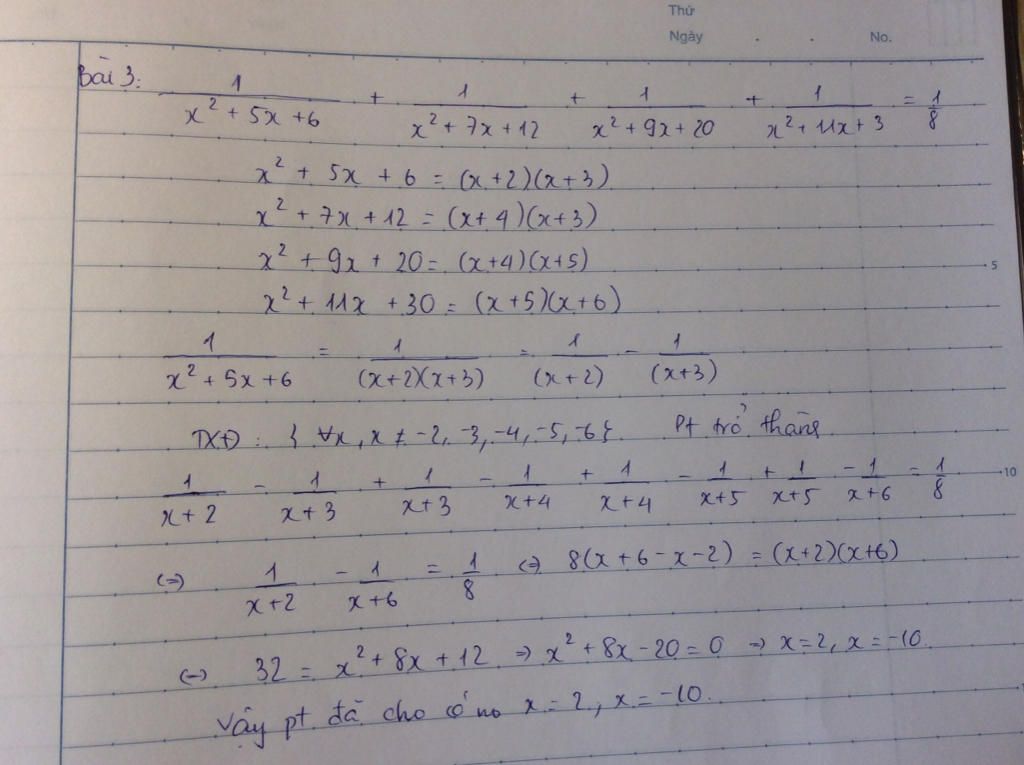 Thứ
Ngày . . No.
Bài 3: 1/(x² + 5x + 6) + 1/(x² + 7x + 12) + 1/(x² + 9x + 20) + 1/(x² + 11x + 3) = 1/8
x² + 5x + 6 = (x+2)(x+3)
x² + 7x + 12 = (x+4)(x+3)
x² + 9x + 20 = (x+4)(x+5)
5
x² + 11x + 30 = (x+5)(x+6)
1/(x² + 5x + 6) = 1/((x+2)(x+3)) = 1/(x+2) - 1/(x+3)
TXĐ: { ∀x, x ≠ -2, -3, -4, -5, -6} Pt trở thàng
1/(x+2) - 1/(x+3) + 1/(x+3) - 1/(x+4) + 1/(x+4) - 1/(x+5) + 1/(x+5) - 1/(x+6) = 1/8
10
(=) 1/(x+2) - 1/(x+6) = 1/8 (=) 8(x+6-x-2) = (x+2)(x+6)
(=) 32 = x² + 8x + 12 => x² + 8x - 20 = 0 => x=2, x=-10.
Vậy pt đã cho có no x = 2, x = -10.